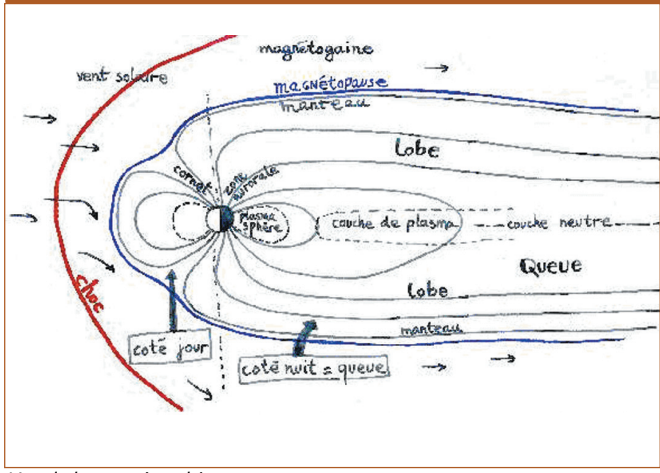 magnétogaine
vent solaire
magnétopause
manteau
Lobe
cornet
zone aurorale
plasma
sphère
couche de plasma
couche neutre
Queue
choc
Lobe
manteau
coté jour
coté nuit = queue